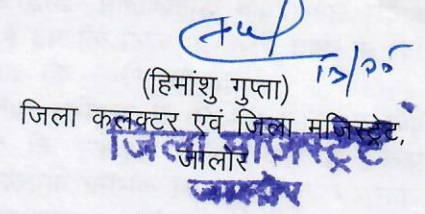 13/05
(हिमांशु गुप्ता)
जिला कलक्टर एवं जिला मजिस्ट्रेट,
जालोर
जिला मजिस्ट्रेट
जालोर